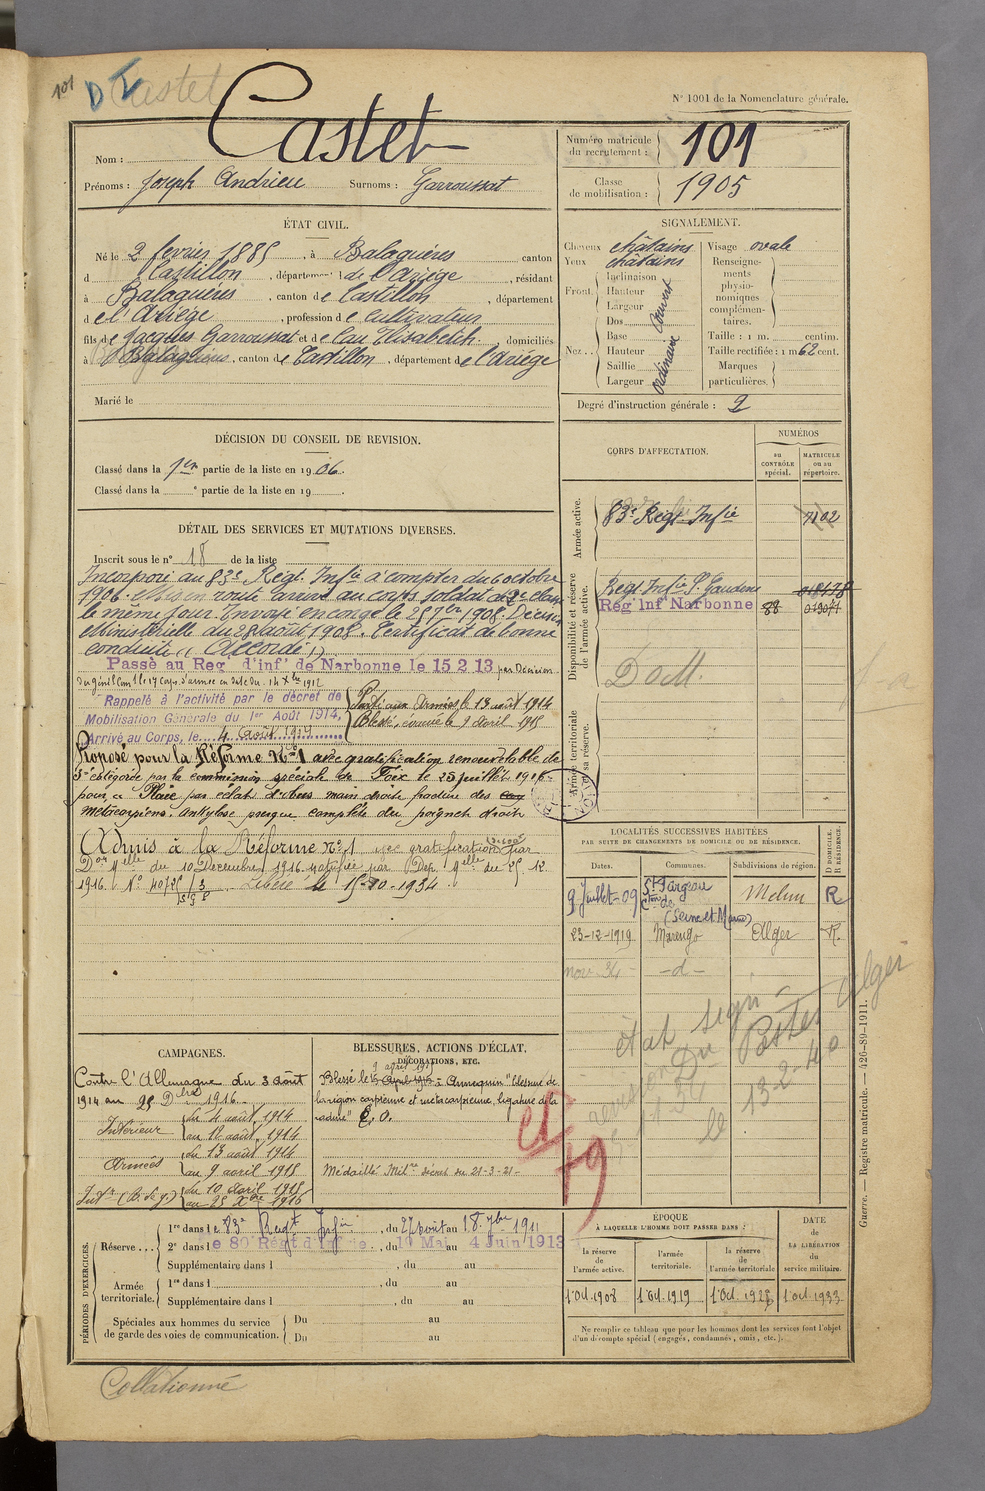 101
D I
Castet
N° 1001 de la Nomenclature générale.
Nom : Castet
Prénoms : Joseph Andrieu Surnoms : Garroussat
Numéro matricule du recrutement : 101
Classe de mobilisation : 1905
ÉTAT CIVIL.
Né le 2 fevrier 1885, à Balaguères canton
d Castillon, département de l'Ariège, résidant
à Balaguères, canton de Castillon, département
de l'Ariège, profession de Cultivateur
fils de Jacques Garroussat et de Cau Elisabeth, domiciliés
à Balaguères, canton de Castillon, département de l'Ariège
Marié le
SIGNALEMENT.
Cheveux châtains Visage ovale
Yeux châtains
Front. Inclinaison Hauteur Largeur couvert
Nez... Dos Base Hauteur Saillie Largeur ordinaire
Renseignements physionomiques complémentaires.
Taille : 1 m. centim.
Taille rectifiée : 1 m 62 cent.
Marques particulières.
Degré d'instruction générale : 2
DÉCISION DU CONSEIL DE REVISION.
Classé dans la 1ère partie de la liste en 1906.
Classé dans la ° partie de la liste en 19 .
DÉTAIL DES SERVICES ET MUTATIONS DIVERSES.
Inscrit sous le n° 18 de la liste
Incorporé au 83e Régt. Infie à compter du 6 octobre
1906. Mis en route arrivé au corps soldat de 2e classe
le même jour. Envoyé en congé le 25 7bre 1908. Décision
Ministérielle du 28 août 1908. Certificat de bonne
conduite « Accordé »
Passé au Reg' d'inf' de Narbonne le 15 2 13 par Décision
du génl Comt le 17e corps d'armée en date du 14 Xbre 1912
Rappelé à l'activité par le décret de
Mobilisation Générale du 1er Août 1914,
Arrivé au Corps, le 4 Août 1914
Parti aux Armées le 13 août 1914
Blessé, évacué le 9 Avril 1915
Proposé pour la Réforme N° 1 avec gratification renouvelable de
5e catégorie par la commission spéciale de Foix le 25 juillet 1916
pour : Plaie par éclat d'obus main droite fracture des
métacarpiens. ankylose presque complète du poignet droit
Admis à la Réforme n° 1 avec gratification par
Don Mlle du 10 Décembre 1916 notifiée par Dep. Mlle du 25 12
1916 N° Libéré le 15-10-1934
CORPS D'AFFECTATION.
NUMÉROS
au CONTRÔLE spécial.
MATRICULE ou au répertoire.
Armée active.
83e Régt Infie 7102
Disponibilité et réserve de l'armée active.
Régt Infie St Gaudens 018178
Reg' inf' Narbonne 88 01907
D o M.
Armée territoriale et sa réserve.
LOCALITÉS SUCCESSIVES HABITÉES
PAR SUITE DE CHANGEMENTS DE DOMICILE OU DE RÉSIDENCE.
Dates. Communes. Subdivisions de région. D DOMICILE. R RÉSIDENCE.
9 Juillet-09 St Fargeau (Seine et Marne) Melun R
23-12-1919 Marengo Alger R.
nov 34 -d-
état sign
Postes Alger
revision Du
le 13-2-40
CAMPAGNES.
Contre l'Allemagne du 3 Août
1914 au 25 Dbre 1916
Intérieur du 4 août 1914
au 12 août 1914
Armées du 13 août 1914
au 9 avril 1915
Intr (B. de g.) du 10 avril 1915
au 25 Xbre 1916
BLESSURES, ACTIONS D'ÉCLAT, DÉCORATIONS, ETC.
9 avril 1915
Blessé le à Annequin "blessure de
la région carpienne et métacarpienne, ligature de la
radiale" E. O.
Médaillé Milre Décret du 21-3-21-
PÉRIODES D'EXERCICES.
Réserve...
1re dans le 83e Régt Infie, du 27 Août au 18 7bre 1911
2e dans le 80e Régt d'Infie, du 19 Mai au 4 Juin 1913
Supplémentaire dans l , du au
Armée territoriale.
1re dans l , du au
Supplémentaire dans l , du au
Spéciales aux hommes du service de garde des voies de communication.
Du au
Du au
ÉPOQUE
À LAQUELLE L'HOMME DOIT PASSER DANS :
la réserve de l'armée active.
l'armée territoriale.
la réserve de l'armée territoriale
DATE de LA LIBÉRATION du service militaire.
1 Oct. 1908 1 Oct. 1919 1 Oct. 1926 1 Oct. 1933
Ne remplir ce tableau que pour les hommes dont les services font l'objet
d'un décompte spécial (engagés, condamnés, omis, etc.).
Guerre. — Registre matricule. — 426-89-1911.
Collationné